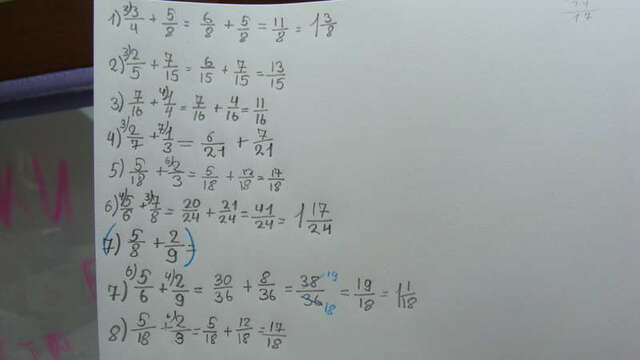 1) ³⁾3/4 + 5/8 = 6/8 + 5/8 = 11/8 = 1 3/8
2) ³⁾2/5 + 7/15 = 6/15 + 7/15 = 13/15
3) 7/16 + ⁴⁾1/4 = 7/16 + 4/16 = 11/16
4) ³⁾2/7 + ⁷⁾1/3 = 6/21 + 7/21
5) 5/18 + ⁶⁾2/3 = 5/18 + 12/18 = 17/18
6) ⁴⁾5/6 + ³⁾7/8 = 20/24 + 21/24 = 41/24 = 1 17/24
(7) 5/8 + 2/9) =
7) ⁶⁾5/6 + ⁴⁾2/9 = 30/36 + 8/36 = 38/36 19/18 = 19/18 = 1 1/18
8) 5/18 + ⁶⁾2/3 = 5/18 + 12/18 = 17/18